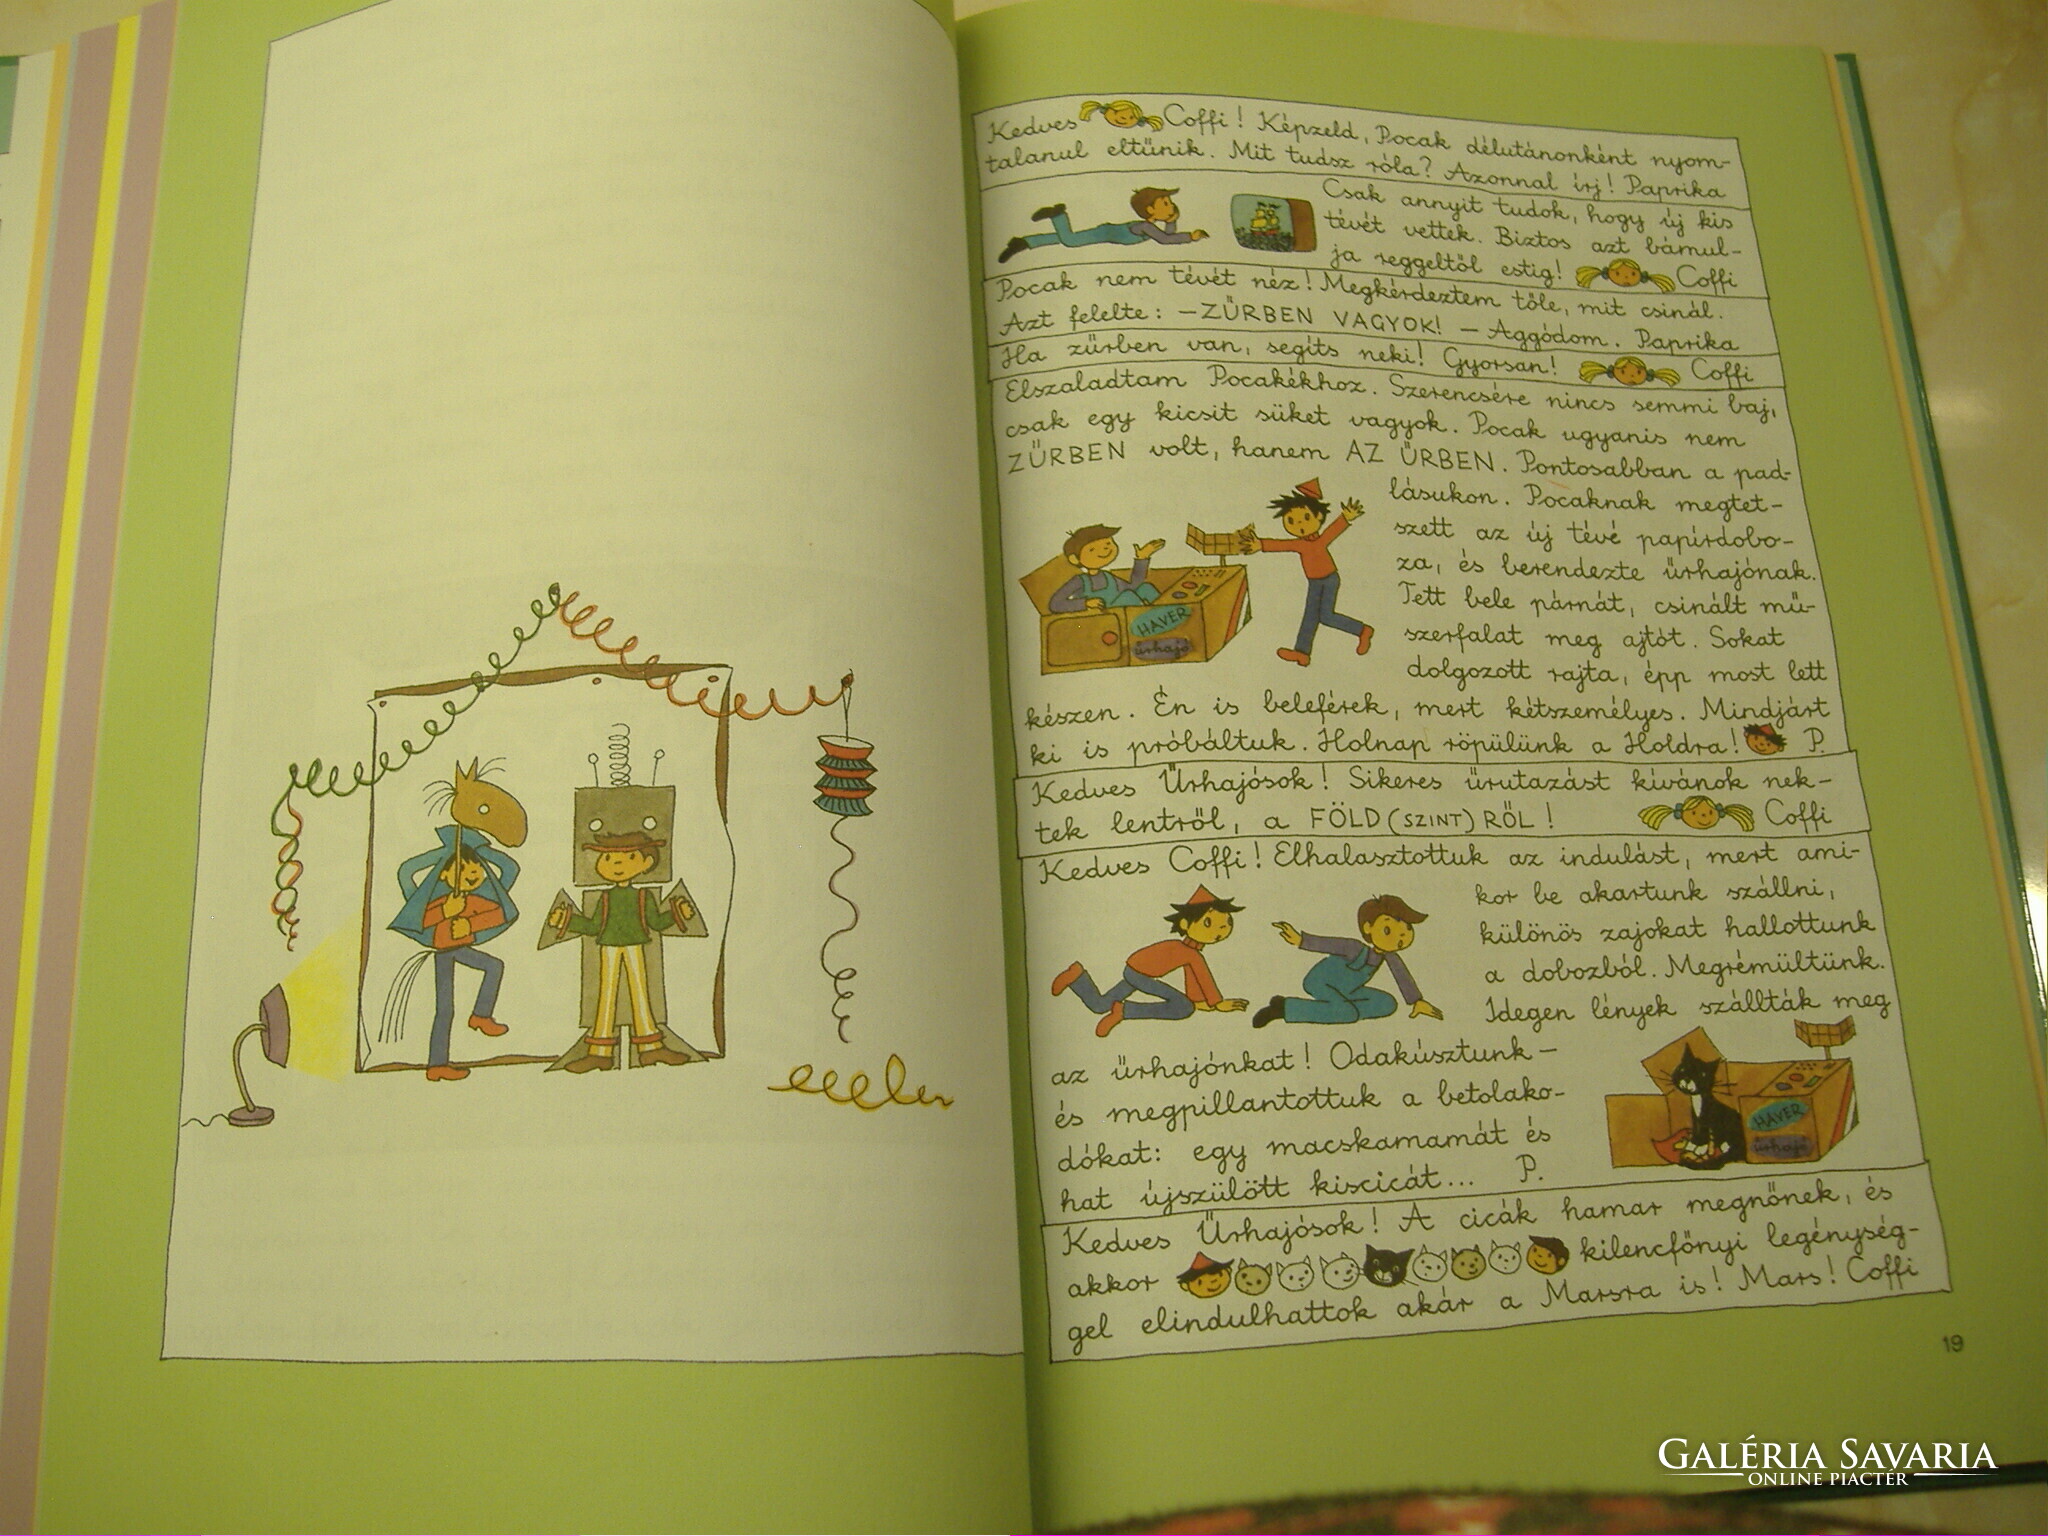 Kedves Coffi! Képzeld, Pocak délutánonként nyom-
talanul eltűnik. Mit tudsz róla? Azonnal írj! Paprika
Csak annyit tudok, hogy új kis
tévét vettek. Biztos azt bámul-
ja reggeltől estig! Coffi
Pocak nem tévét néz! Megkérdeztem tőle, mit csinál.
Azt felelte: – ZŰRBEN VAGYOK! – Aggódom. Paprika
Ha zűrben van, segíts neki! Gyorsan! Coffi
Elszaladtam Pocakékhoz. Szerencsére nincs semmi baj,
csak egy kicsit süket vagyok. Pocak ugyanis nem
ZŰRBEN volt, hanem AZ ŰRBEN. Pontosabban a pad-
lásukon. Pocaknak megtet-
szett az új tévé papírdobo-
za, és berendezte űrhajónak.
Tett bele párnát, csinált mű-
szerfalat meg ajtót. Sokat
dolgozott rajta, épp most lett
HAVER
űrhajó
készen. Én is beleférek, mert kétszemélyes. Mindjárt
ki is próbáltuk. Holnap röpülünk a Holdra! P.
Kedves Űrhajósok! Sikeres űrutazást kívánok nek-
tek lentről, a FÖLD(SZINT)RŐL! Coffi
Kedves Coffi! Elhalasztottuk az indulást, mert ami-
kor be akartunk szállni,
különös zajokat hallottunk
a dobozból. Megrémültünk.
Idegen lények szállták meg
az űrhajónkat! Odakúsztunk –
és megpillantottuk a betolako-
dókat: egy macskamamát és
hat újszülött kiscicát... P.
HAVER
űrhajó
Kedves Űrhajósok! A cicák hamar megnőnek, és
akkor kilencfőnyi legénység-
gel elindulhattok akár a Marsra is! Mars! Coffi
19
GALÉRIA SAVARIA
ONLINE PIACTÉR